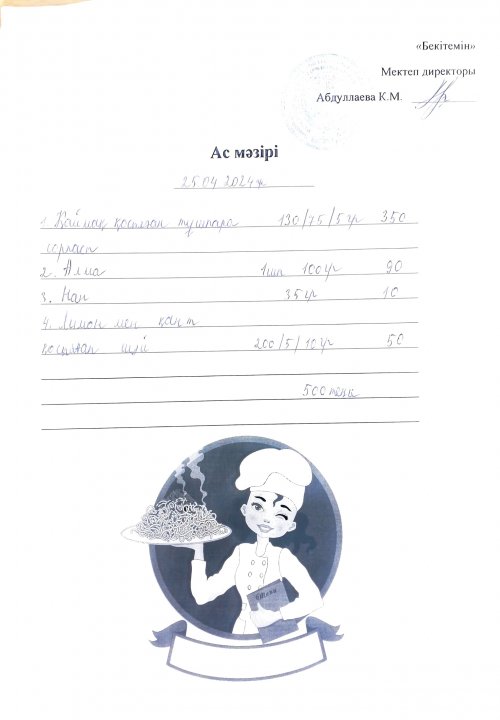 «Бекітемін»
Мектеп директоры
Абдуллаева К.М.
Ас мәзірі
25 04 2024ж
1. Қаймақ қосылған тұшпара 130/75/5гр 350
сорпасы
2. Алма 1шт 100гр 90
3. Нан 35гр 10
4. Лимон мен қант
қосылған шәй 200/5/10гр 50
500 теңге